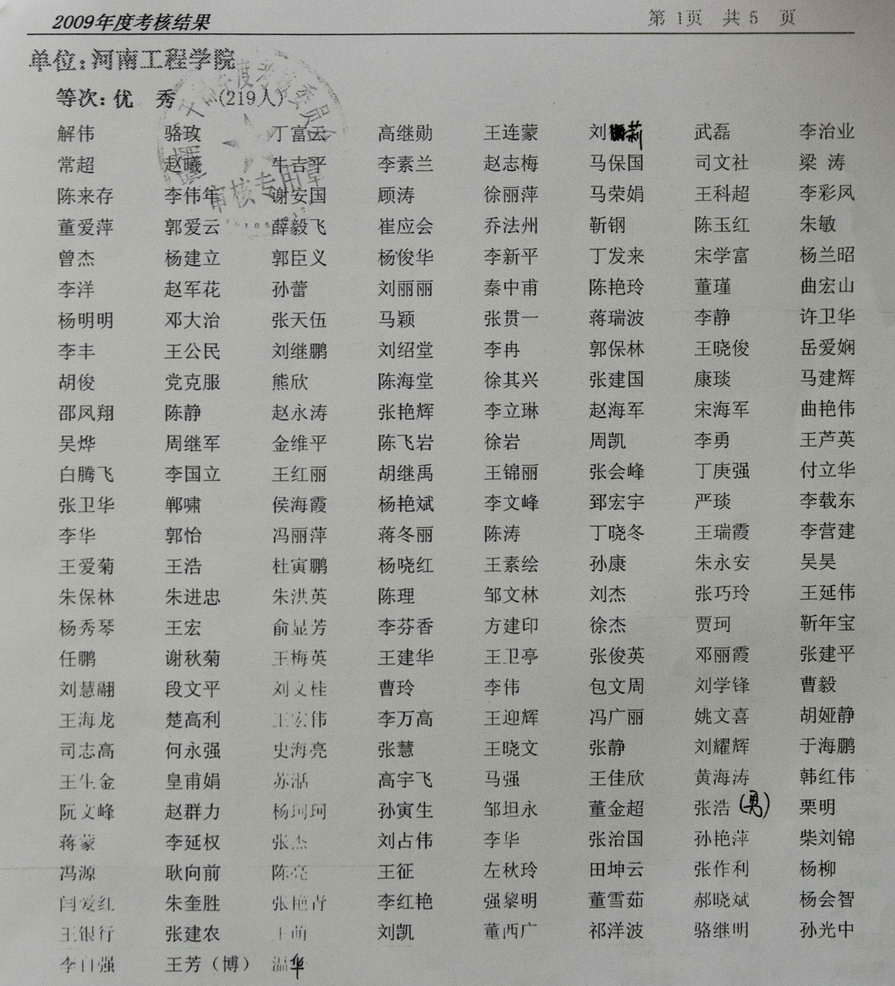 2009年度考核结果 第 1页 共 5 页
单位：河南工程学院
等次：优 秀 (219人)
审核专用章
解伟 骆玫 丁富云 高继勋 王连蒙 刘莉 武磊 李治业
常超 赵曦 牛吉平 李素兰 赵志梅 马保国 司文社 梁 涛
陈来存 李伟年 谢安国 顾涛 徐丽萍 马荣娟 王科超 李彩凤
董爱萍 郭爱云 薛毅飞 崔应会 乔法州 靳钢 陈玉红 朱敏
曾杰 杨建立 郭臣义 杨俊华 李新平 丁发来 宋学富 杨兰昭
李洋 赵军花 孙蕾 刘丽丽 秦中甫 陈艳玲 董瑾 曲宏山
杨明明 邓大治 张天伍 马颖 张贯一 蒋瑞波 李静 许卫华
李丰 王公民 刘继鹏 刘绍堂 李冉 郭保林 王晓俊 岳爱娴
胡俊 党克服 熊欣 陈海堂 徐其兴 张建国 康琰 马建辉
邵凤翔 陈静 赵永涛 张艳辉 李立琳 赵海军 宋海军 曲艳伟
吴烨 周继军 金维平 陈飞岩 徐岩 周凯 李勇 王芦英
白腾飞 李国立 王红丽 胡继禹 王锦丽 张会峰 丁庚强 付立华
张卫华 郸啸 侯海霞 杨艳斌 李文峰 郅宏宇 严琰 李载东
李华 郭怡 冯丽萍 蒋冬丽 陈涛 丁晓冬 王瑞霞 李营建
王爱菊 王浩 杜寅鹏 杨晓红 王素绘 孙康 朱永安 吴昊
朱保林 朱进忠 朱洪英 陈理 邹文林 刘杰 张巧玲 王延伟
杨秀琴 王宏 俞显芳 李芬香 方建印 徐杰 贾珂 靳年宝
任鹏 谢秋菊 王梅英 王建华 王卫亭 张俊英 邓丽霞 张建平
刘慧翮 段文平 刘文桂 曹玲 李伟 包文周 刘学锋 曹毅
王海龙 楚高利 王宏伟 李万高 王迎辉 冯广丽 姚文喜 胡娅静
司志高 何永强 史海亮 张慧 王晓文 张静 刘耀辉 于海鹏
王生金 皇甫娟 苏湉 高宇飞 马强 王佳欣 黄海涛 韩红伟
阮文峰 赵群力 杨珂珂 孙寅生 邹坦永 董金超 张浩(勇) 栗明
蒋蒙 李延权 张杰 刘占伟 李华 张治国 孙艳萍 柴刘锦
冯源 耿向前 陈亮 王征 左秋玲 田坤云 张作利 杨柳
闫爱红 朱奎胜 张艳青 李红艳 强黎明 董雪茹 郝晓斌 杨会智
王银行 张建农 王萌 刘凯 董西广 祁洋波 骆继明 孙光中
李自强 王芳（博） 温华